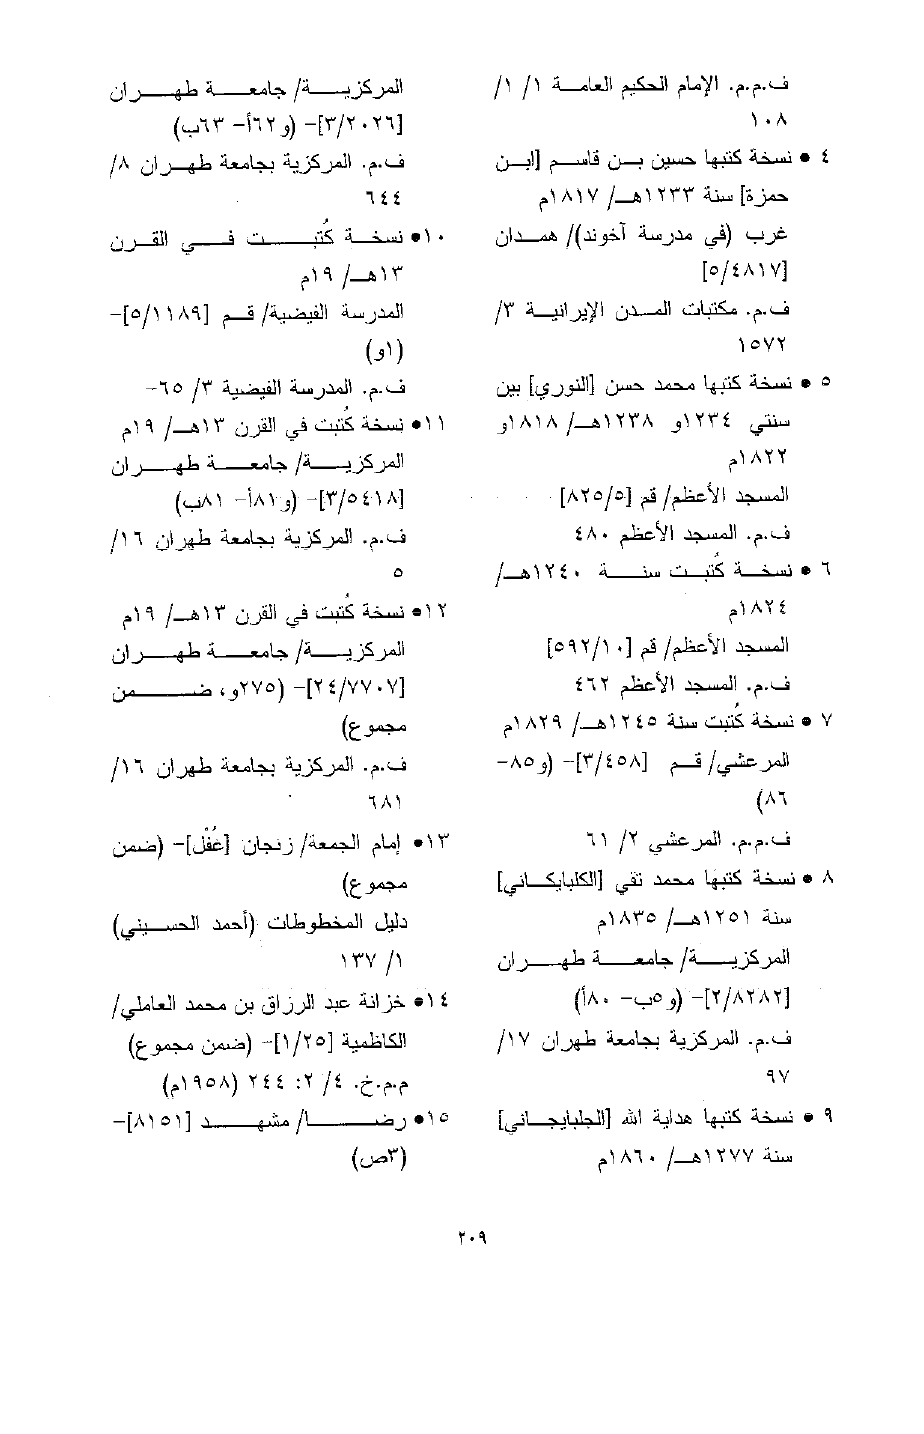 ف.م.م. الإمام الحكيم العامة ١/ ١/
١٠٨
٤ • نسخة كتبها حسين بن قاسم [ابن
حمزة] سنة ١٢٣٣هـ/ ١٨١٧م
غرب (في مدرسة آخوند)/ همدان
[٥/٤٨١٧]
ف.م. مكتبات المدن الإيرانية ٣/
١٥٧٢
٥ • نسخة كتبها محمد حسن [النوري] بين
سنتي ١٢٣٤و ١٢٣٨هـ/ ١٨١٨و
١٨٢٢م
المسجد الأعظم/ قم [٨٢٥/٥]
ف.م. المسجد الأعظم ٤٨٠
٦ • نسخة كُتبت سنة ١٢٤٠هـ/
١٨٢٤م
المسجد الأعظم/ قم [٥٩٢/١٠]
ف.م. المسجد الأعظم ٤٦٢
٧ • نسخة كُتبت سنة ١٢٤٥هـ/ ١٨٢٩م
المرعشي/ قم [٣/٤٥٨]- (و٨٥-
٨٦)
ف.م.م. المرعشي ٢/ ٦١
٨ • نسخة كتبها محمد تقي [الكلبايكاني]
سنة ١٢٥١هـ/ ١٨٣٥م
المركزية/ جامعة طهران
[٢/٨٢٨٢]- (و٥ب- ٨٠أ)
ف.م. المركزية بجامعة طهران ١٧/
٩٧
٩ • نسخة كتبها هداية الله [الجلبايجاني]
سنة ١٢٧٧هـ/ ١٨٦٠م
المركزية/ جامعة طهران
[٣/٢٠٢٦]- (و٦٢أ- ٦٣ب)
ف.م. المركزية بجامعة طهران ٨/
٦٤٤
١٠• نسخة كُتبت في القرن
١٣هـ/ ١٩م
المدرسة الفيضية/ قم [٥/١١٨٩]-
(١و)
ف.م. المدرسة الفيضية ٣/ ٦٥-
١١• نسخة كُتبت في القرن ١٣هـ/ ١٩م
المركزية/ جامعة طهران
[٣/٥٤١٨]- (و٨١أ- ٨١ب)
ف.م. المركزية بجامعة طهران ١٦/
٥
١٢• نسخة كُتبت في القرن ١٣هـ/ ١٩م
المركزية/ جامعة طهران
[٢٤/٧٧٠٧]- (٢٧٥و، ضمن
مجموع)
ف.م. المركزية بجامعة طهران ١٦/
٦٨١
١٣• إمام الجمعة/ زنجان [غُفْل]- (ضمن
مجموع)
دليل المخطوطات (أحمد الحسيني)
١/ ١٣٧
١٤• خزانة عبد الرزاق بن محمد العاملي/
الكاظمية [١/٢٥]- (ضمن مجموع)
م.م.خ. ٤/ ٢: ٢٤٤ (١٩٥٨م)
١٥• رضا/ مشهد [٨١٥١]-
(٣ص)
٢٠٩